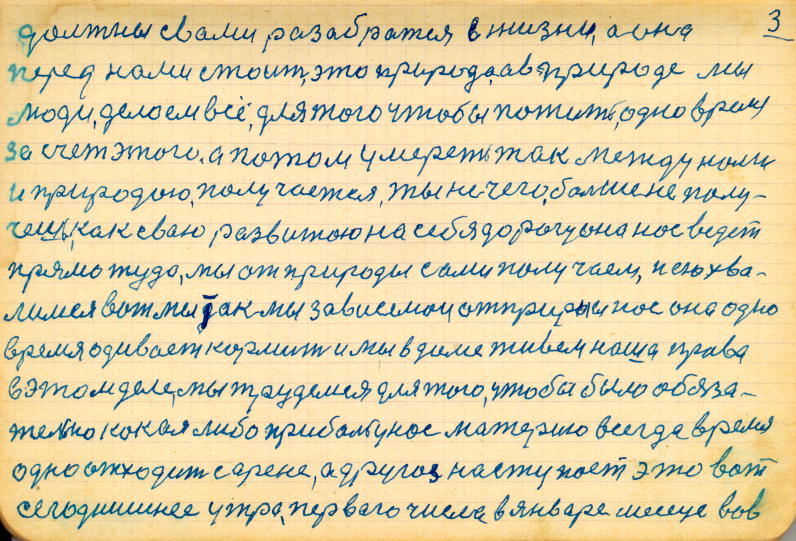 3
должны свами разабратся в жизни, а она
перед нами стоит, это природа, а в природе мы
люди, делоем всё, для того чтобы пожить, одно время
за счет этого. а потом умереть так между нами
и природою, получается, ты не чего, больше не полу-
чеш, как сваю развитою на себя дорогу она нас ведет
прямо туда, мы от природы сами получаем, и ею хва-
лимся вот мы так мы зависемои от нас она одно
время одивает кормит и мы в доме живем наша права
в этом деле, мы трудемся для того, чтобы было обяза-
тельно кокая либо прибаль у нас материю всегда время
одно отходит с арене, а другоя наступает это вот
сегоднишнее утра, перваго числа, в январе месеце вов